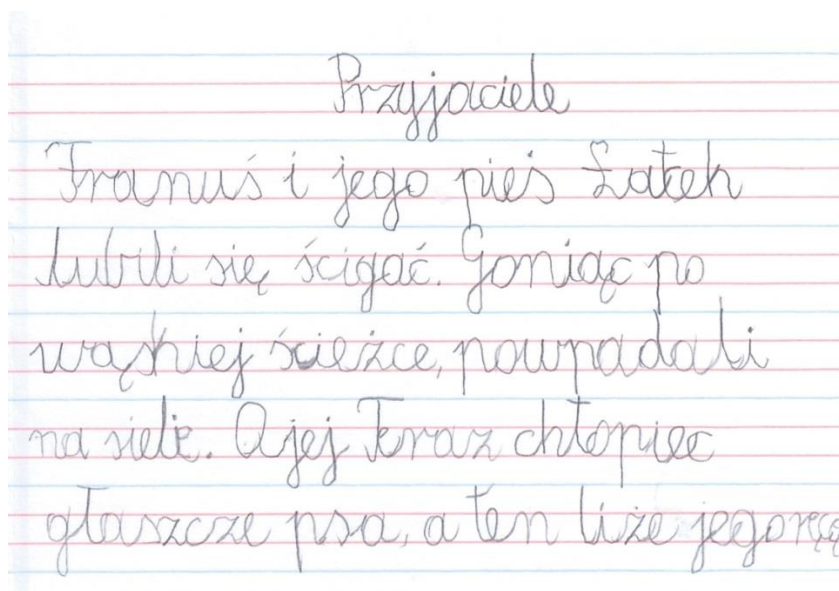 Przyjaciele
Franuś i jego pieś Łatek
lubili się ścigać. Goniąc po
wąskiej ścieżce, powpadali
na siebie. Ojej Teraz chłopiec
głaszcze psa, a ten liże jego rękę